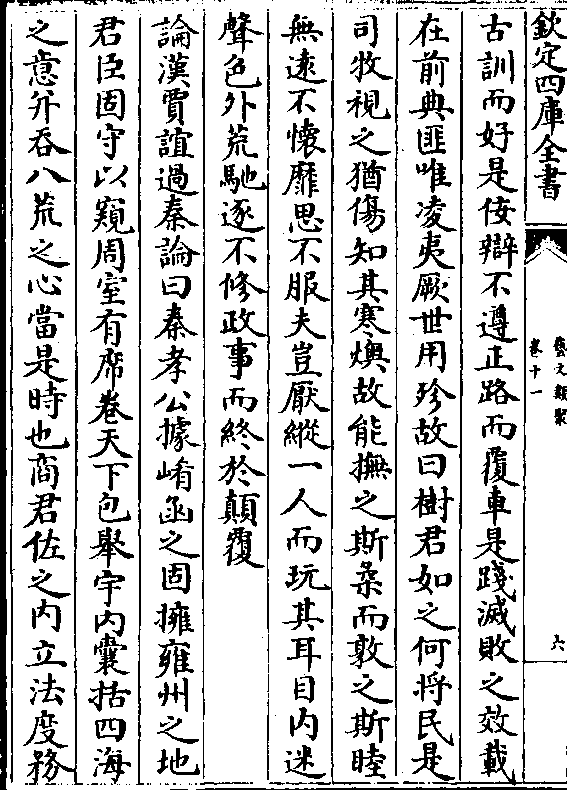 欽定四庫全書
藝文類聚
卷十一
六
古訓而好是佞辯不遵正路而覆車是踐滅敗之效載
在前典匪唯凌夷厥世用殄故曰樹君如之何将民是
司牧視之猶傷知其寒燠故能撫之斯柔而敦之斯睦
無逺不懐靡思不服夫豈厭縱一人而玩其耳目内迷
聲色外荒馳逐不修政事而終於顛覆
論漢賈誼過秦論曰秦孝公據崤函之固擁雍州之地
君臣固守以窺周室有席卷天下包舉宇内囊括四海
之意并吞八荒之心當是時也商君佐之内立法度務